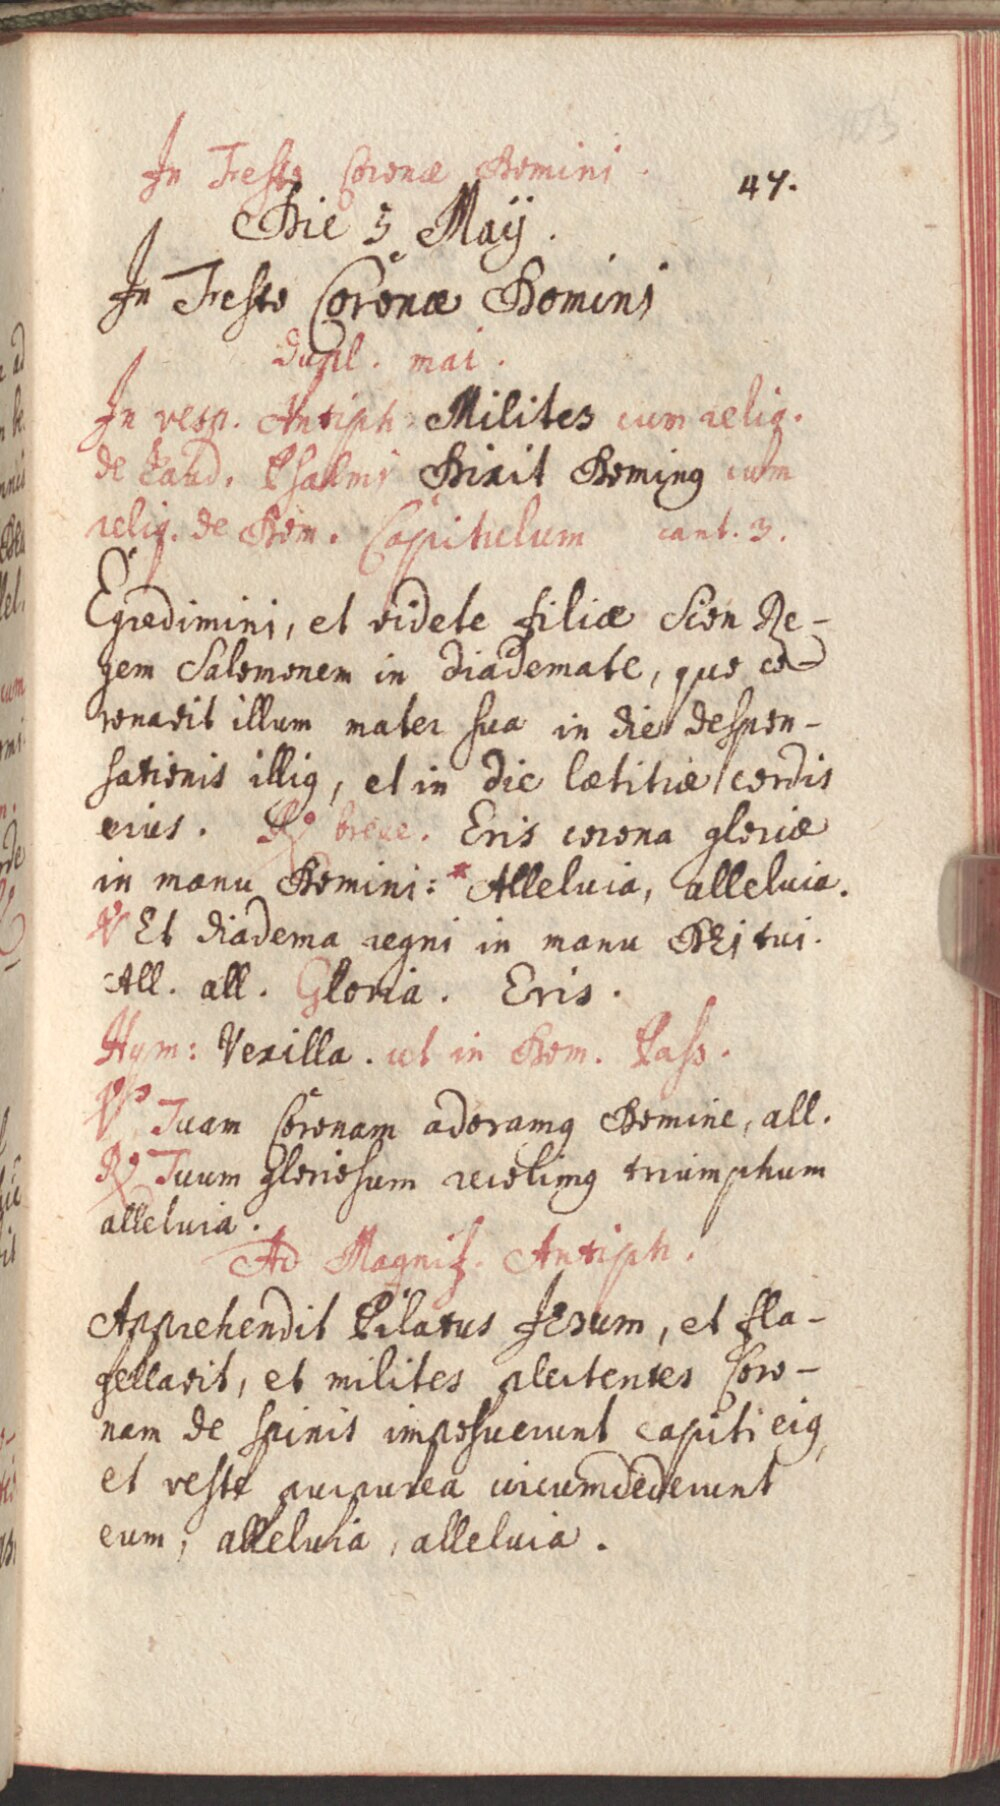 103
In Festo Coronæ Domini.
47.
Die 5 Maij.
In Festo Coronæ Domini
dupl. mai.
In vesp. Antiph: Milites cum reliq.
de Laud. Psalmi Dixit Dominꝰ cum
reliq. de Dom. Capitulum cant. 3.
Egredimini, et videte filiæ Sion Re-
gem Salomonem in diademate, quo co-
ronavit illum mater sua in die despon-
sationis illiꝰ, et in die lætitiæ cordis
eius. ℟ breve. Eris corona gloriæ
in manu Domini: * Alleluia, alleluia.
℣ Et diadema regni in manu DEi tui.
All. all. Gloria. Eris.
Hym: Vexilla. ut in Dom. Pass.
℣ Tuam Coronam adoramꝰ Domine, all.
℟ Tuum gloriosum recolimꝰ triumphum
alleluia.
Ad Magnif. Antiph.
Apprehendit Pilatus JEsum, et fla-
gellavit, et milites plectentes Coro-
nam de spinis imposuerunt capiti eiꝰ,
et veste purpurea circumdederunt
eum, alleluia, alleluia.